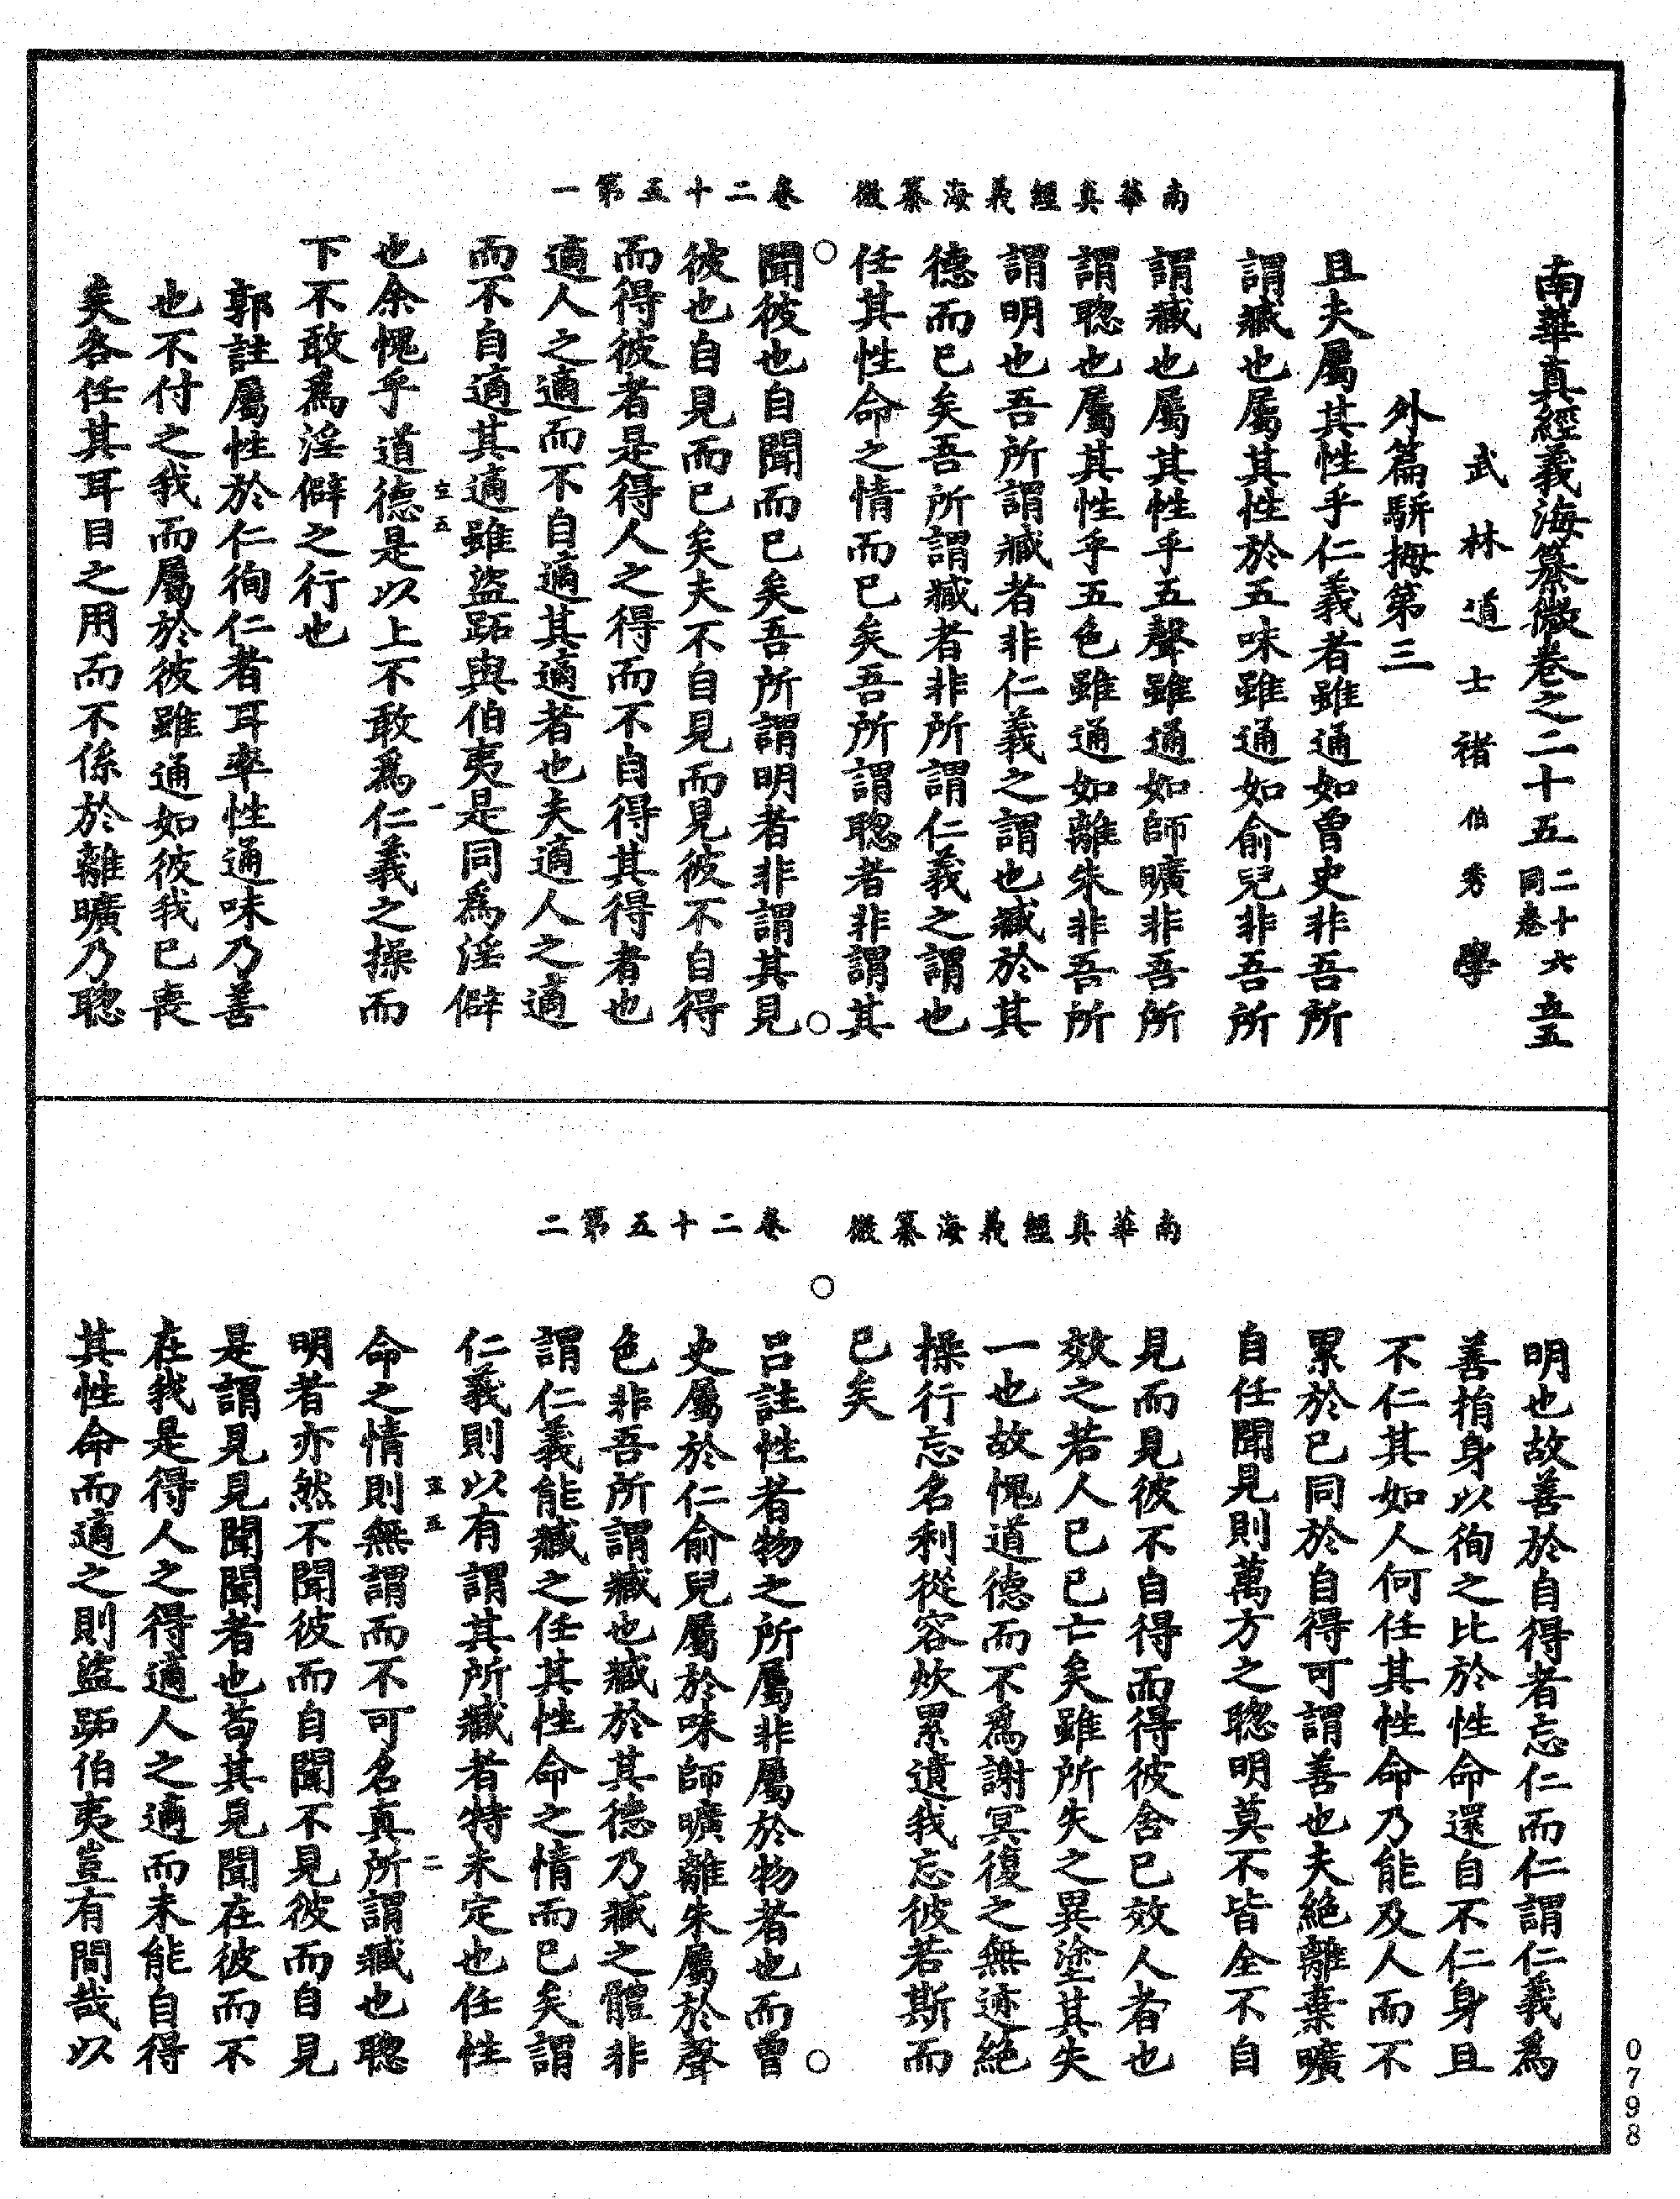 南華真經義海纂微　卷二十五第一
南華真經義海纂微卷之二十五　二十六同卷　立五
武林道士褚伯秀學
外篇駢拇第三
且夫屬其性乎仁義者雖通如曾史非吾所
謂臧也屬其性於五味雖通如俞兒非吾所
謂臧也屬其性乎五聲雖通如師曠非吾所
謂聰也屬其性乎五色雖通如離朱非吾所
謂明也吾所謂臧者非仁義之謂也臧於其
德而已矣吾所謂臧者非所謂仁義之謂也
任其性命之情而已矣吾所謂聰者非謂其
聞彼也自聞而已矣吾所謂明者非謂其見
彼也自見而已矣夫不自見而見彼不自得
而得彼者是得人之得而不自得其得者也
適人之適而不自適其適者也夫適人之適
而不自適其適雖盜跖與伯夷是同為淫僻
立五　一
也余愧乎道德是以上不敢為仁義之操而
下不敢為淫僻之行也
郭註屬性於仁徇仁者耳率性通味乃善
也不付之我而屬於彼雖通如彼我已喪
矣各任其耳目之用而不係於離曠乃聰
南華真經義海纂微　卷二十五第二
明也故善於自得者忘仁而仁謂仁義為
善揹身以徇之比於性命還自不仁身且
不仁其如人何任其性命乃能及人而不
累於己同於自得可謂善也夫絕離棄曠
自任聞見則萬方之聰明莫不皆全不自
見而見彼不自得而得彼舍己效人者也
效之若人己已亡矣雖所失之異塗其失
一也故愧道德而不為謝冥復之無迹絕
操行忘名利從容炊累遺我忘彼若斯而
已矣
呂註性者物之所屬非屬於物者也而曾
史屬於仁俞兒屬於味師曠離朱屬於聲
色非吾所謂臧也臧於其德乃臧之體非
謂仁義能臧之任其性命之情而已矣謂
仁義則以有謂其所臧者特未定也任性
立五　二
命之情則無謂而不可名真所謂臧也聰
明者亦然不聞彼而自聞不見彼而自見
是謂見見聞聞者也苟其見聞在彼而不
在我是得人之得適人之適而未能自得
其性命而適之則盜跖伯夷豈有間哉以
0798